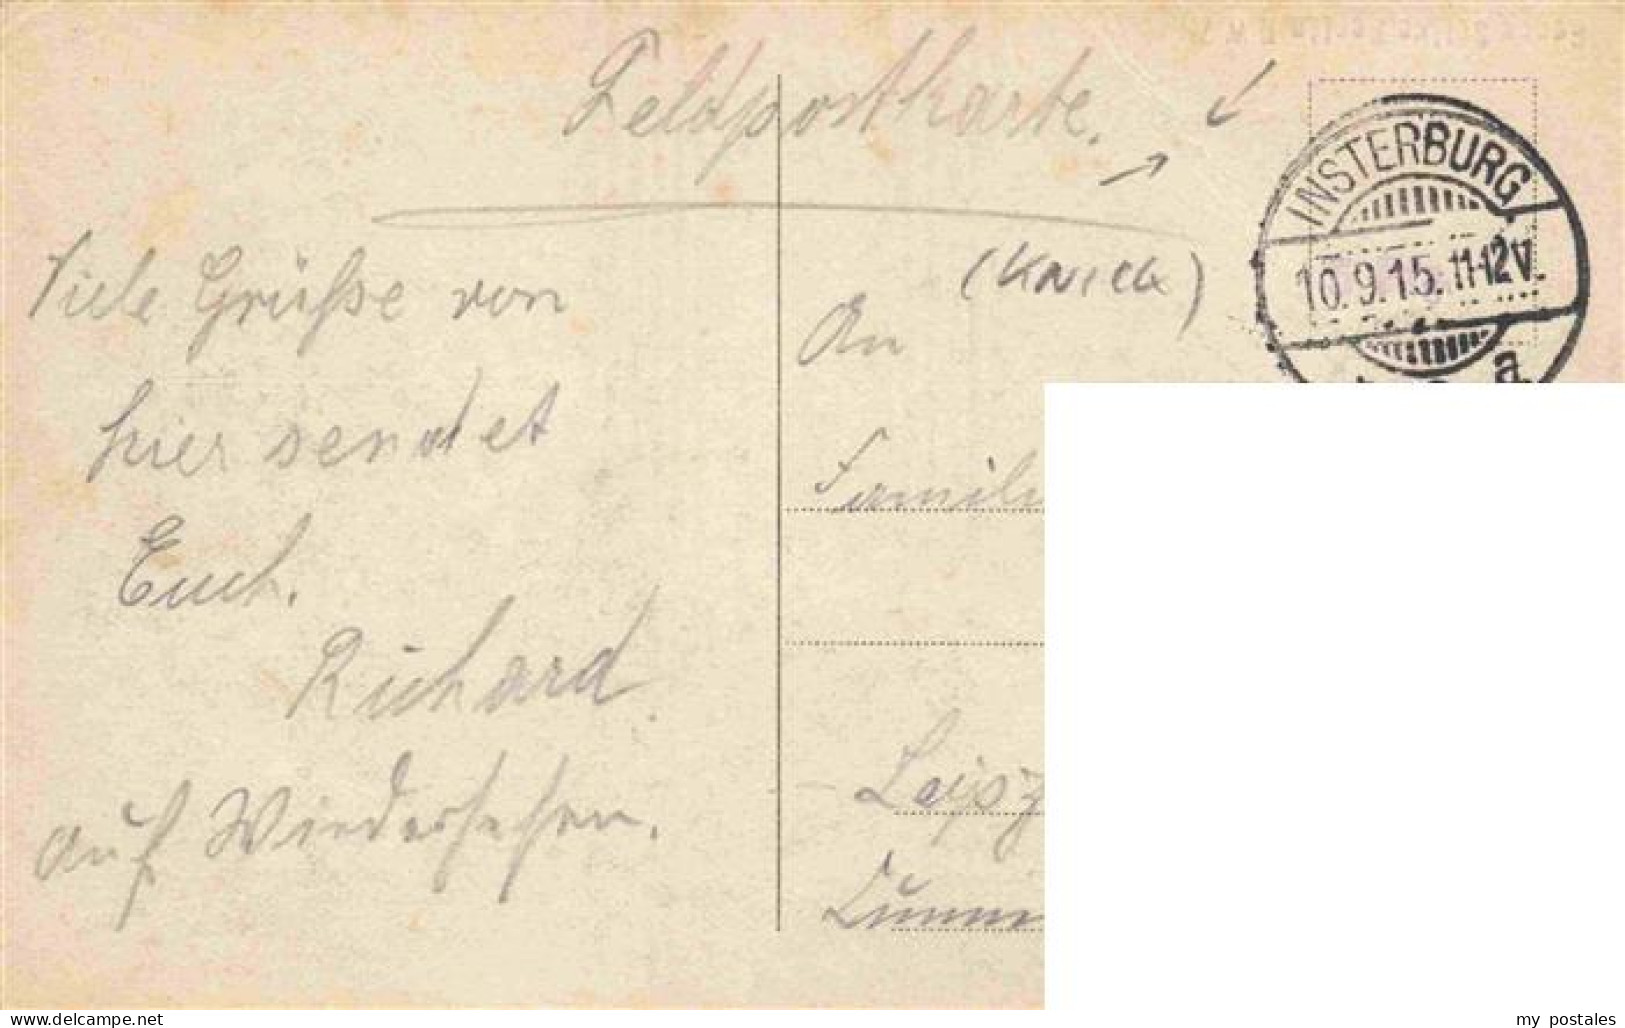 Feldpostkarte.
INSTERBURG
10.9.15. 11-12V.
a
(KNICK)
Viele Grüße von
hier sendet
Euch.
Richard.
Auf Wiedersehen.
An
Famili
Leipz
www.delcampe.net
my_postales